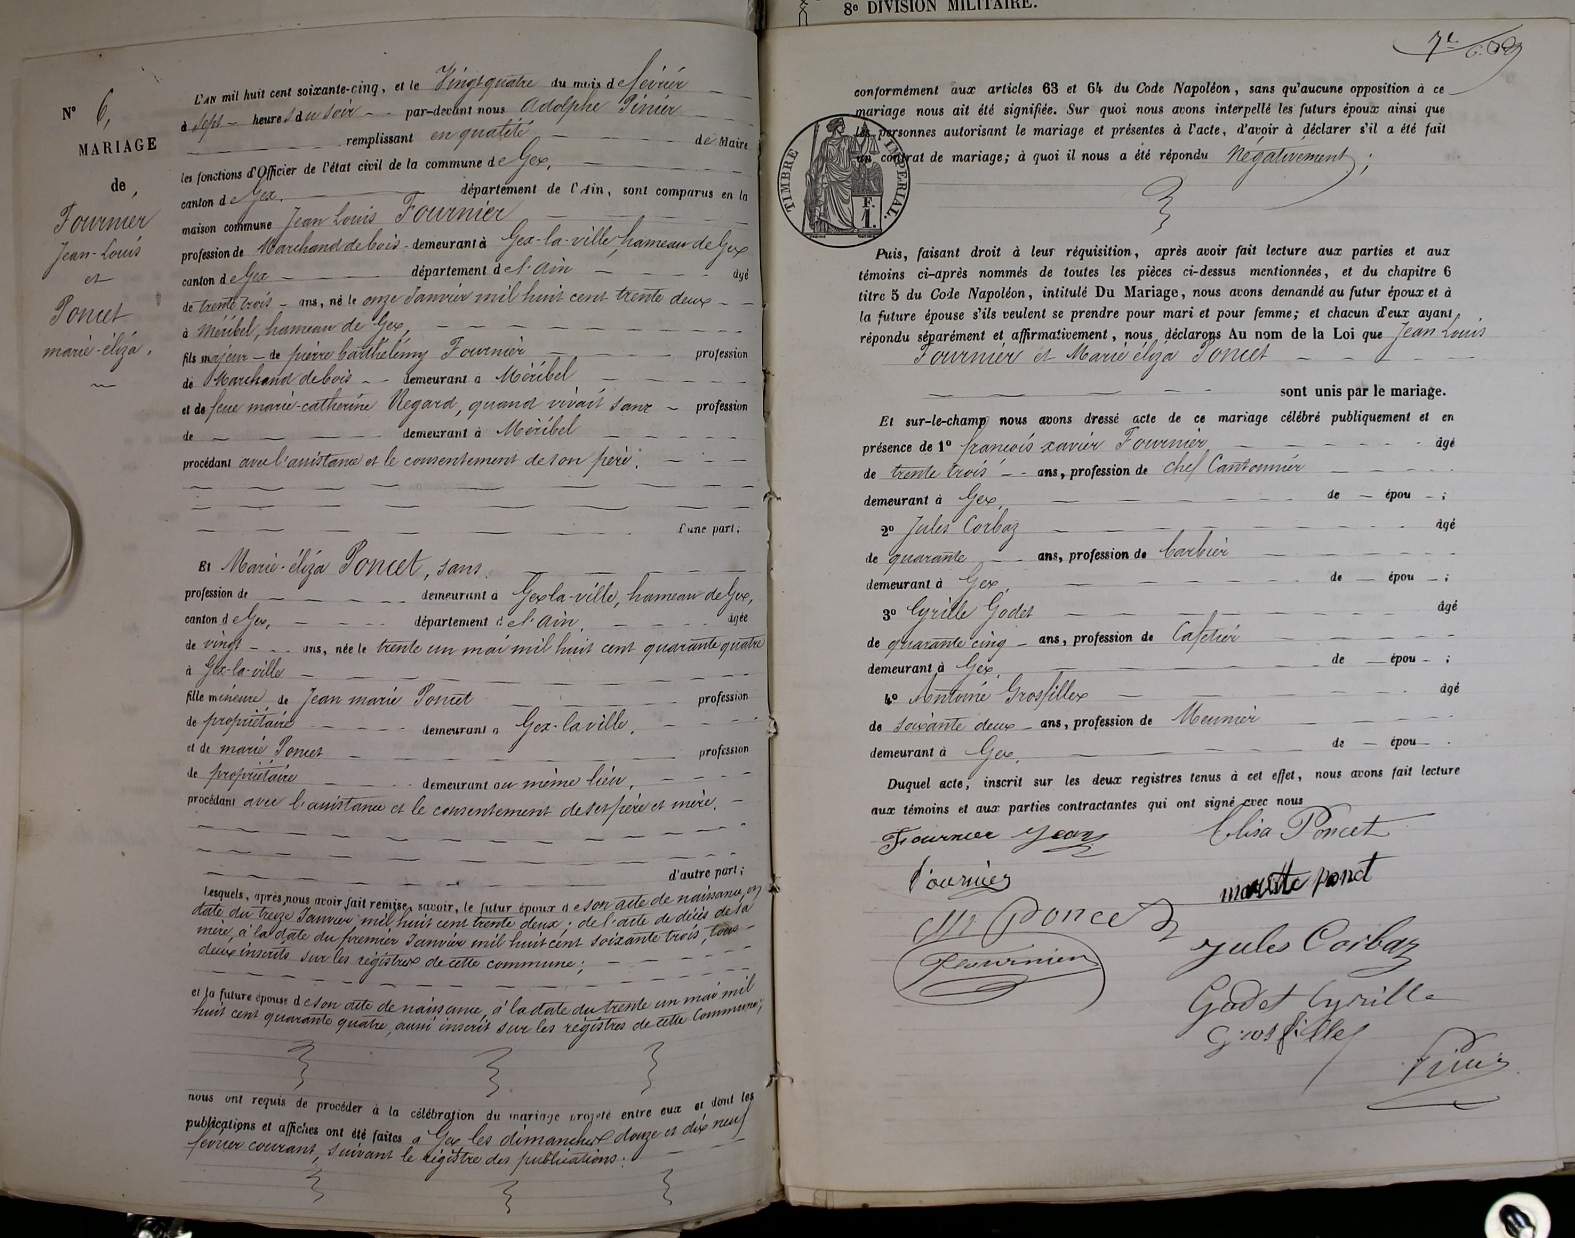 8e DIVISION MILITAIRE.
N° 6,
MARIAGE
de,
Fournier
Jean-Louis
et
Poncet
marie-éliza.
L'AN mil huit cent soixante-cinq, et le Vingt quatre du mois de février
à sept heures du soir par-devant nous Adolphe Pinier
remplissant en qualité de Maire
les fonctions d'Officier de l'état civil de la commune de Gex,
canton de Gex. département de l'Ain, sont comparus en la
maison commune Jean Louis Fournier
profession de Marchand de bois demeurant à Gex-la-ville, hameau de Gex
canton de Gex département de l'Ain âgé
de trente trois ans, né le onze Janvier mil huit cent trente deux
à Méribel, hameau de Gex,
fils majeur de pierre barthélémy Fournier profession
de Marchand de bois demeurant à Méribel
et de feue marie-catherine Regard, quand vivait sans profession
de demeurant à Méribel
procédant avec l'assistance et le consentement de son père.
d'une part;
Et Marie-éliza Poncet, sans
profession de demeurant à Gex la-ville, hameau de Gex,
canton de Gex, département de l'Ain, âgée
de vingt ans, née le trente un mai mil huit cent quarante quatre
à Gex-la-ville
fille mineure, de Jean marie Poncet profession
de propriétaire demeurant à Gex-la ville,
et de marie Poncet profession
de propriétaire demeurant au même lieu,
procédant avec l'assistance et le consentement de ses père et mère.
d'autre part;
Lesquels, après nous avoir fait remise, savoir, le futur époux de son acte de naissance, en
date du treize Janvier mil huit cent trente deux; de l'acte de décès de sa
mère, à la date du premier Janvier mil huit cent soixante trois, tous
deux inscrits sur les régistres de cette commune;
et la future épouse de son acte de naissance, à la date du trente un mai mil
huit cent quarante quatre, aussi inscrit sur les régistres de cette Commune;
nous ont requis de procéder à la célébration du mariage projeté entre eux et dont les
publications et affiches ont été faites à Gex les dimanches douze et dix neuf
février courant, suivant le régistre des publications.
conformément aux articles 63 et 64 du Code Napoléon, sans qu'aucune opposition à ce
mariage nous ait été signifiée. Sur quoi nous avons interpellé les futurs époux ainsi que
les personnes autorisant le mariage et présentes à l'acte, d'avoir à déclarer s'il a été fait
un contrat de mariage; à quoi il nous a été répondu Négativement;
TIMBRE IMPÉRIAL.
F.
1.
Puis, faisant droit à leur réquisition, après avoir fait lecture aux parties et aux
témoins ci-après nommés de toutes les pièces ci-dessus mentionnées, et du chapitre 6
titre 5 du Code Napoléon, intitulé Du Mariage, nous avons demandé au futur époux et à
la future épouse s'ils veulent se prendre pour mari et pour femme; et chacun d'eux ayant
répondu séparément et affirmativement, nous déclarons Au nom de la Loi que Jean Louis
Fournier et Marie éliza Poncet
sont unis par le mariage.
Et sur-le-champ nous avons dressé acte de ce mariage célébré publiquement et en
présence de 1° françois xavier Fournier âgé
de trente trois ans, profession de chef Cantonnier
demeurant à Gex, de épou ;
2° Jules Corbaz âgé
de quarante ans, profession de barbier
demeurant à Gex, de épou ;
3° Cyrille Godet âgé
de quarante cinq ans, profession de Cafetier
demeurant à Gex, de épou ;
4° Antoine Grosfillex âgé
de soixante deux ans, profession de Meunier
demeurant à Gex, de épou .
Duquel acte, inscrit sur les deux registres tenus à cet effet, nous avons fait lecture
aux témoins et aux parties contractantes qui ont signé avec nous
Fournier Jean Elisa Poncet
Fournier
Mr Poncet
Jules Corbaz
Fournier
Godet Cyrille
Grosfillex
Pinier